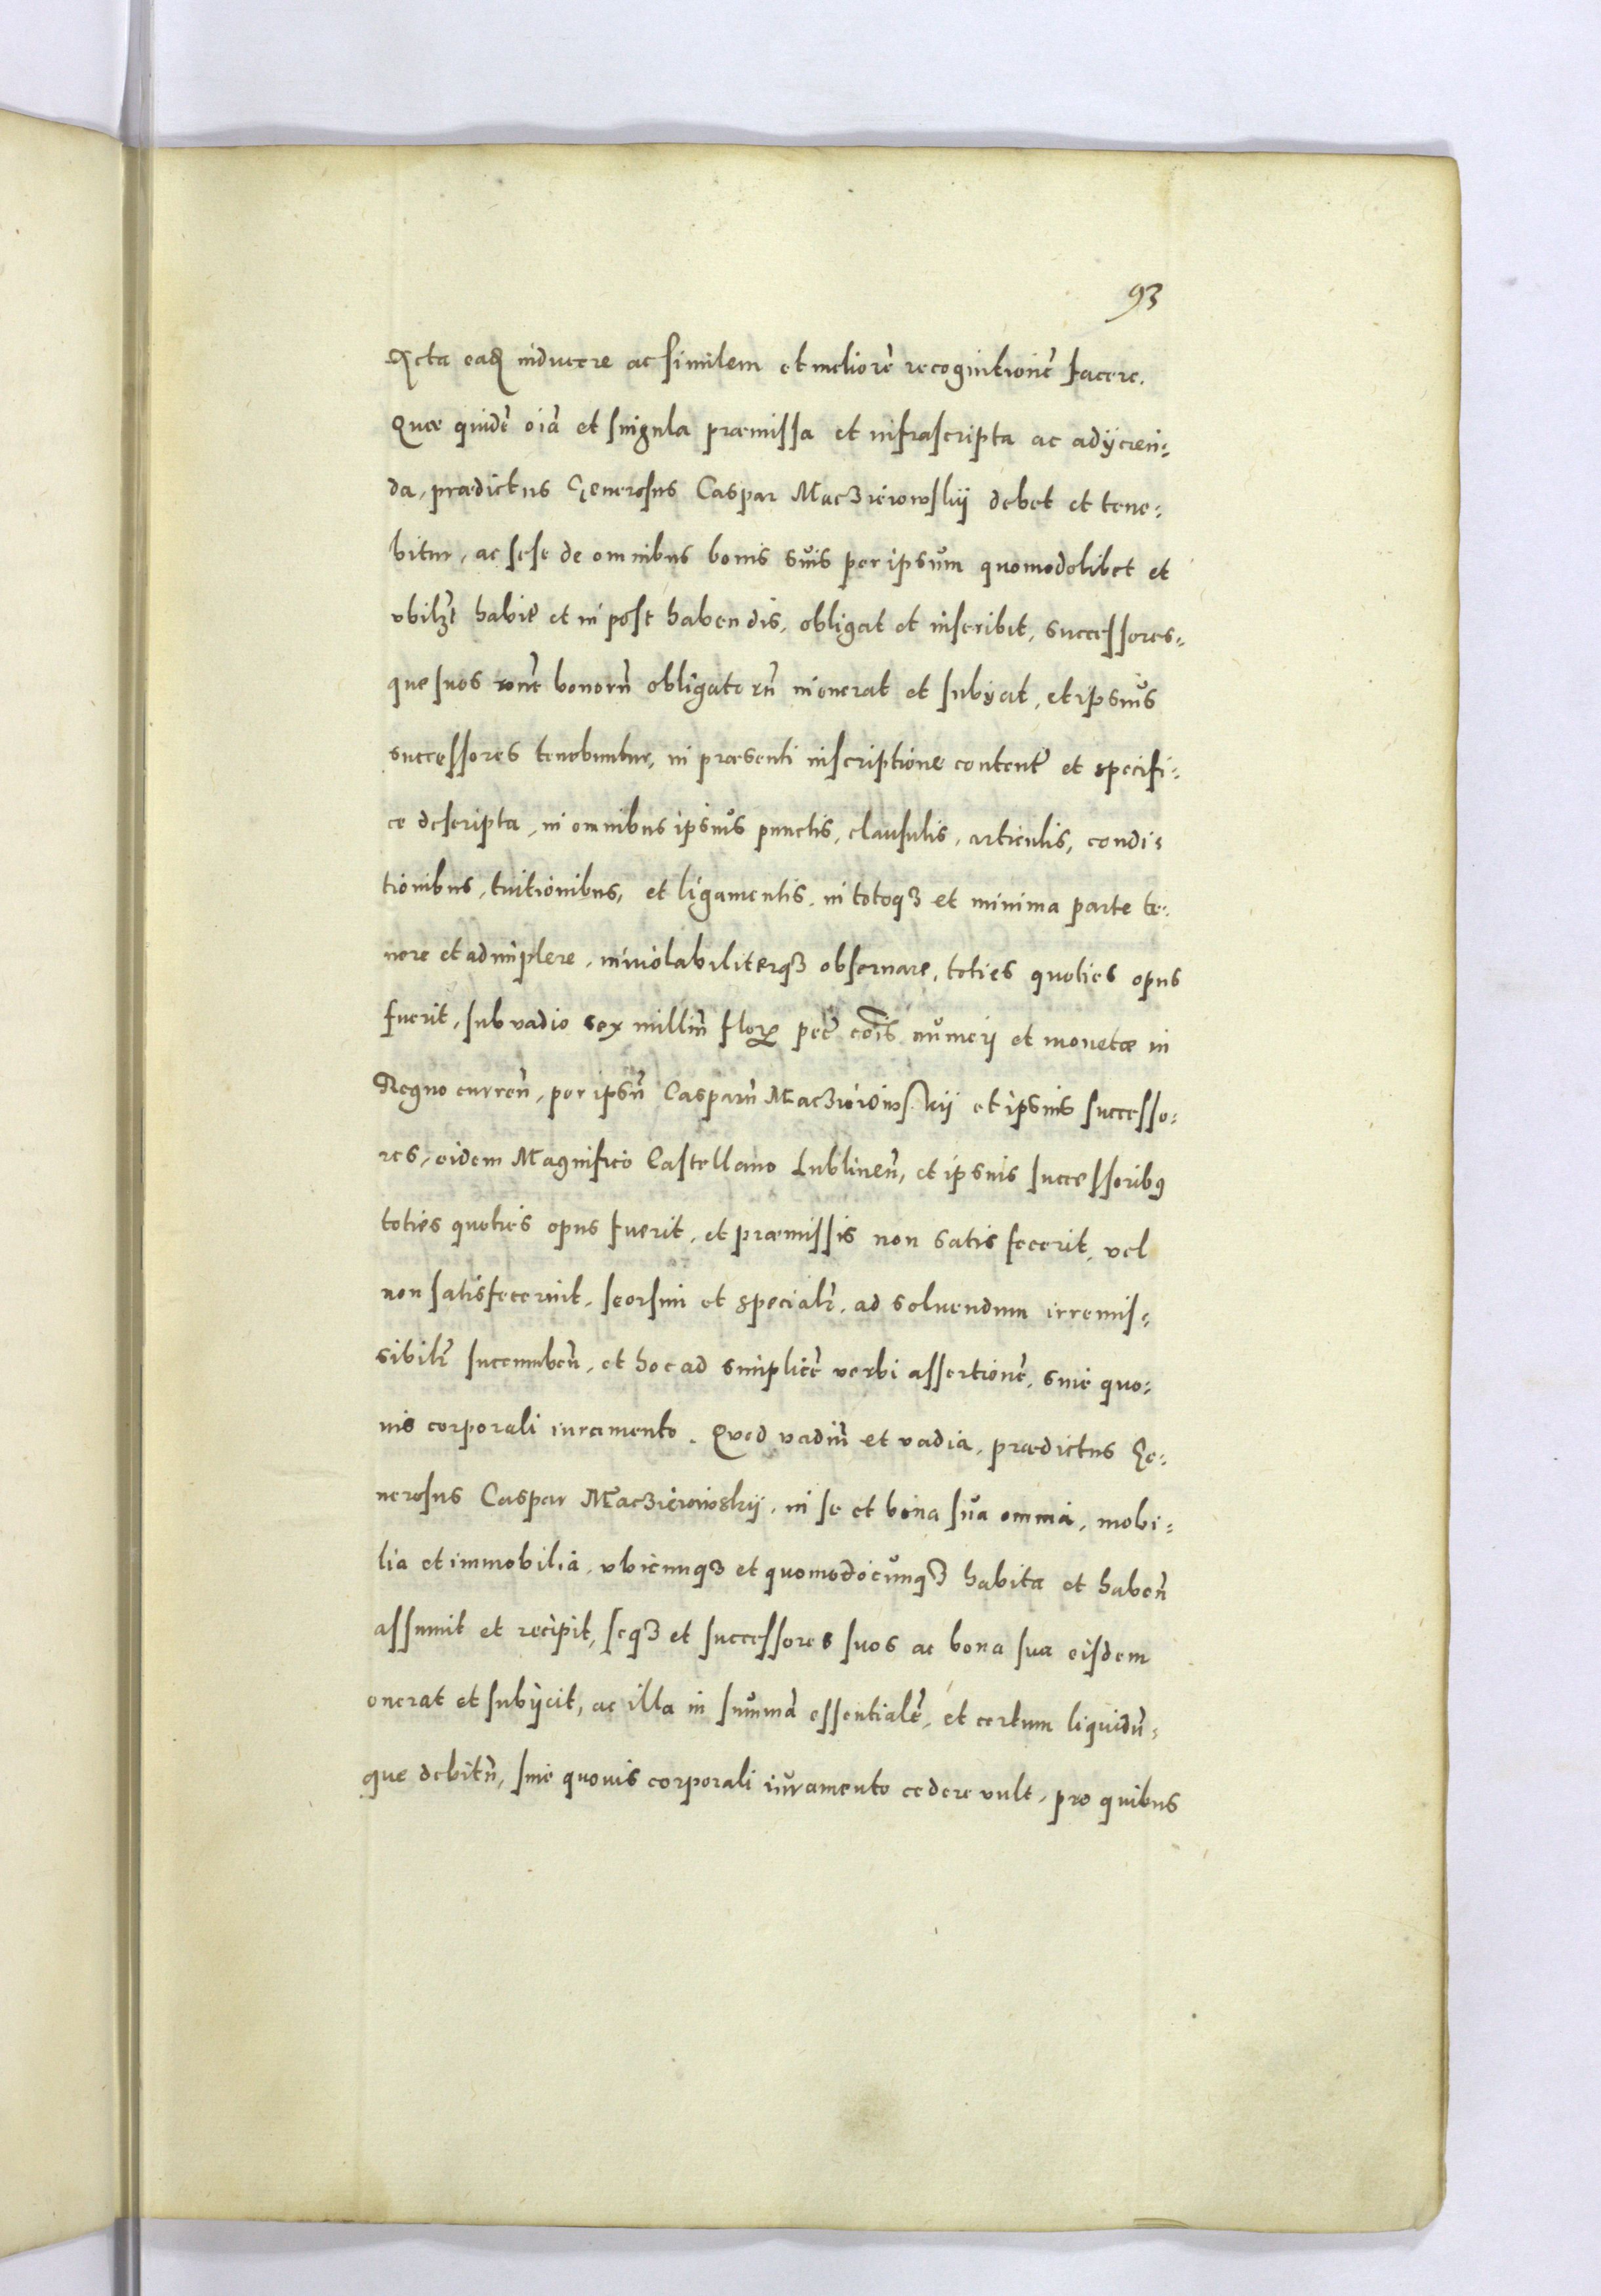 93
Acta eadẽ inducere ac similem et meliorẽ recognitionẽ facere.
Quæ quidẽ oĩa et singula præmissa et infrascripta ac adÿcien-
da, prædictus Generosus Caspar Macziéiowskÿ debet et tene-
bitur, ac sese de omnibus bonis suis per ipsum quomodolibet et
vbilꝫt habit̃ et in post habendis, obligat et inscribit, successores-
que suos rõne bonorũ obligatorũ inonerat et subÿcit, et ipsius
successores tenebuntur, in præsenti inscriptione content̃ et specifi-
ce descripta, in omnibus ipsius punctis, clausulis, articulis, condi-
tionibus, tuitionibus, et ligamentis, in totoqꝫ et minima parte te-
nere et adimplere, inuiolabiliterqꝫ obseruare, toties quoties opus
fuerit, sub vadio sex milliũ florꝝ pec̃ cõis numeri et monetæ in
Regno curreñ, per ipsũ Casparũ Macziéiowskÿ et ipsius successo-
res, eidem Magnifico Castellano Lublineñ, et ipsius successoribꝰ
toties quoties opus fuerit, et præmissis non satis fecerit, vel
non satisfecerint, seorsim et specialr̃, ad soluendum irremis-
sibilr̃ succumbeñ, et hoc ad simplicẽ verbi assertionẽ, sine quo-
uis corporali iuramento. Quod vadiũ et vadia, prædictus Ge-
nerosus Caspar Macziéiowskÿ, in se et bona sua omnia, mobi-
lia et immobilia, vbicunqꝫ et quomodocunqꝫ habita et habeñ
assumit et recipit, seqꝫ et successores suos ac bona sua eisdem
onerat et subÿcit, ac illa in summã essentialẽ, et certum liquidũ-
que debitũ, sine quouis corporali iuramento cedere vult, pro quibus